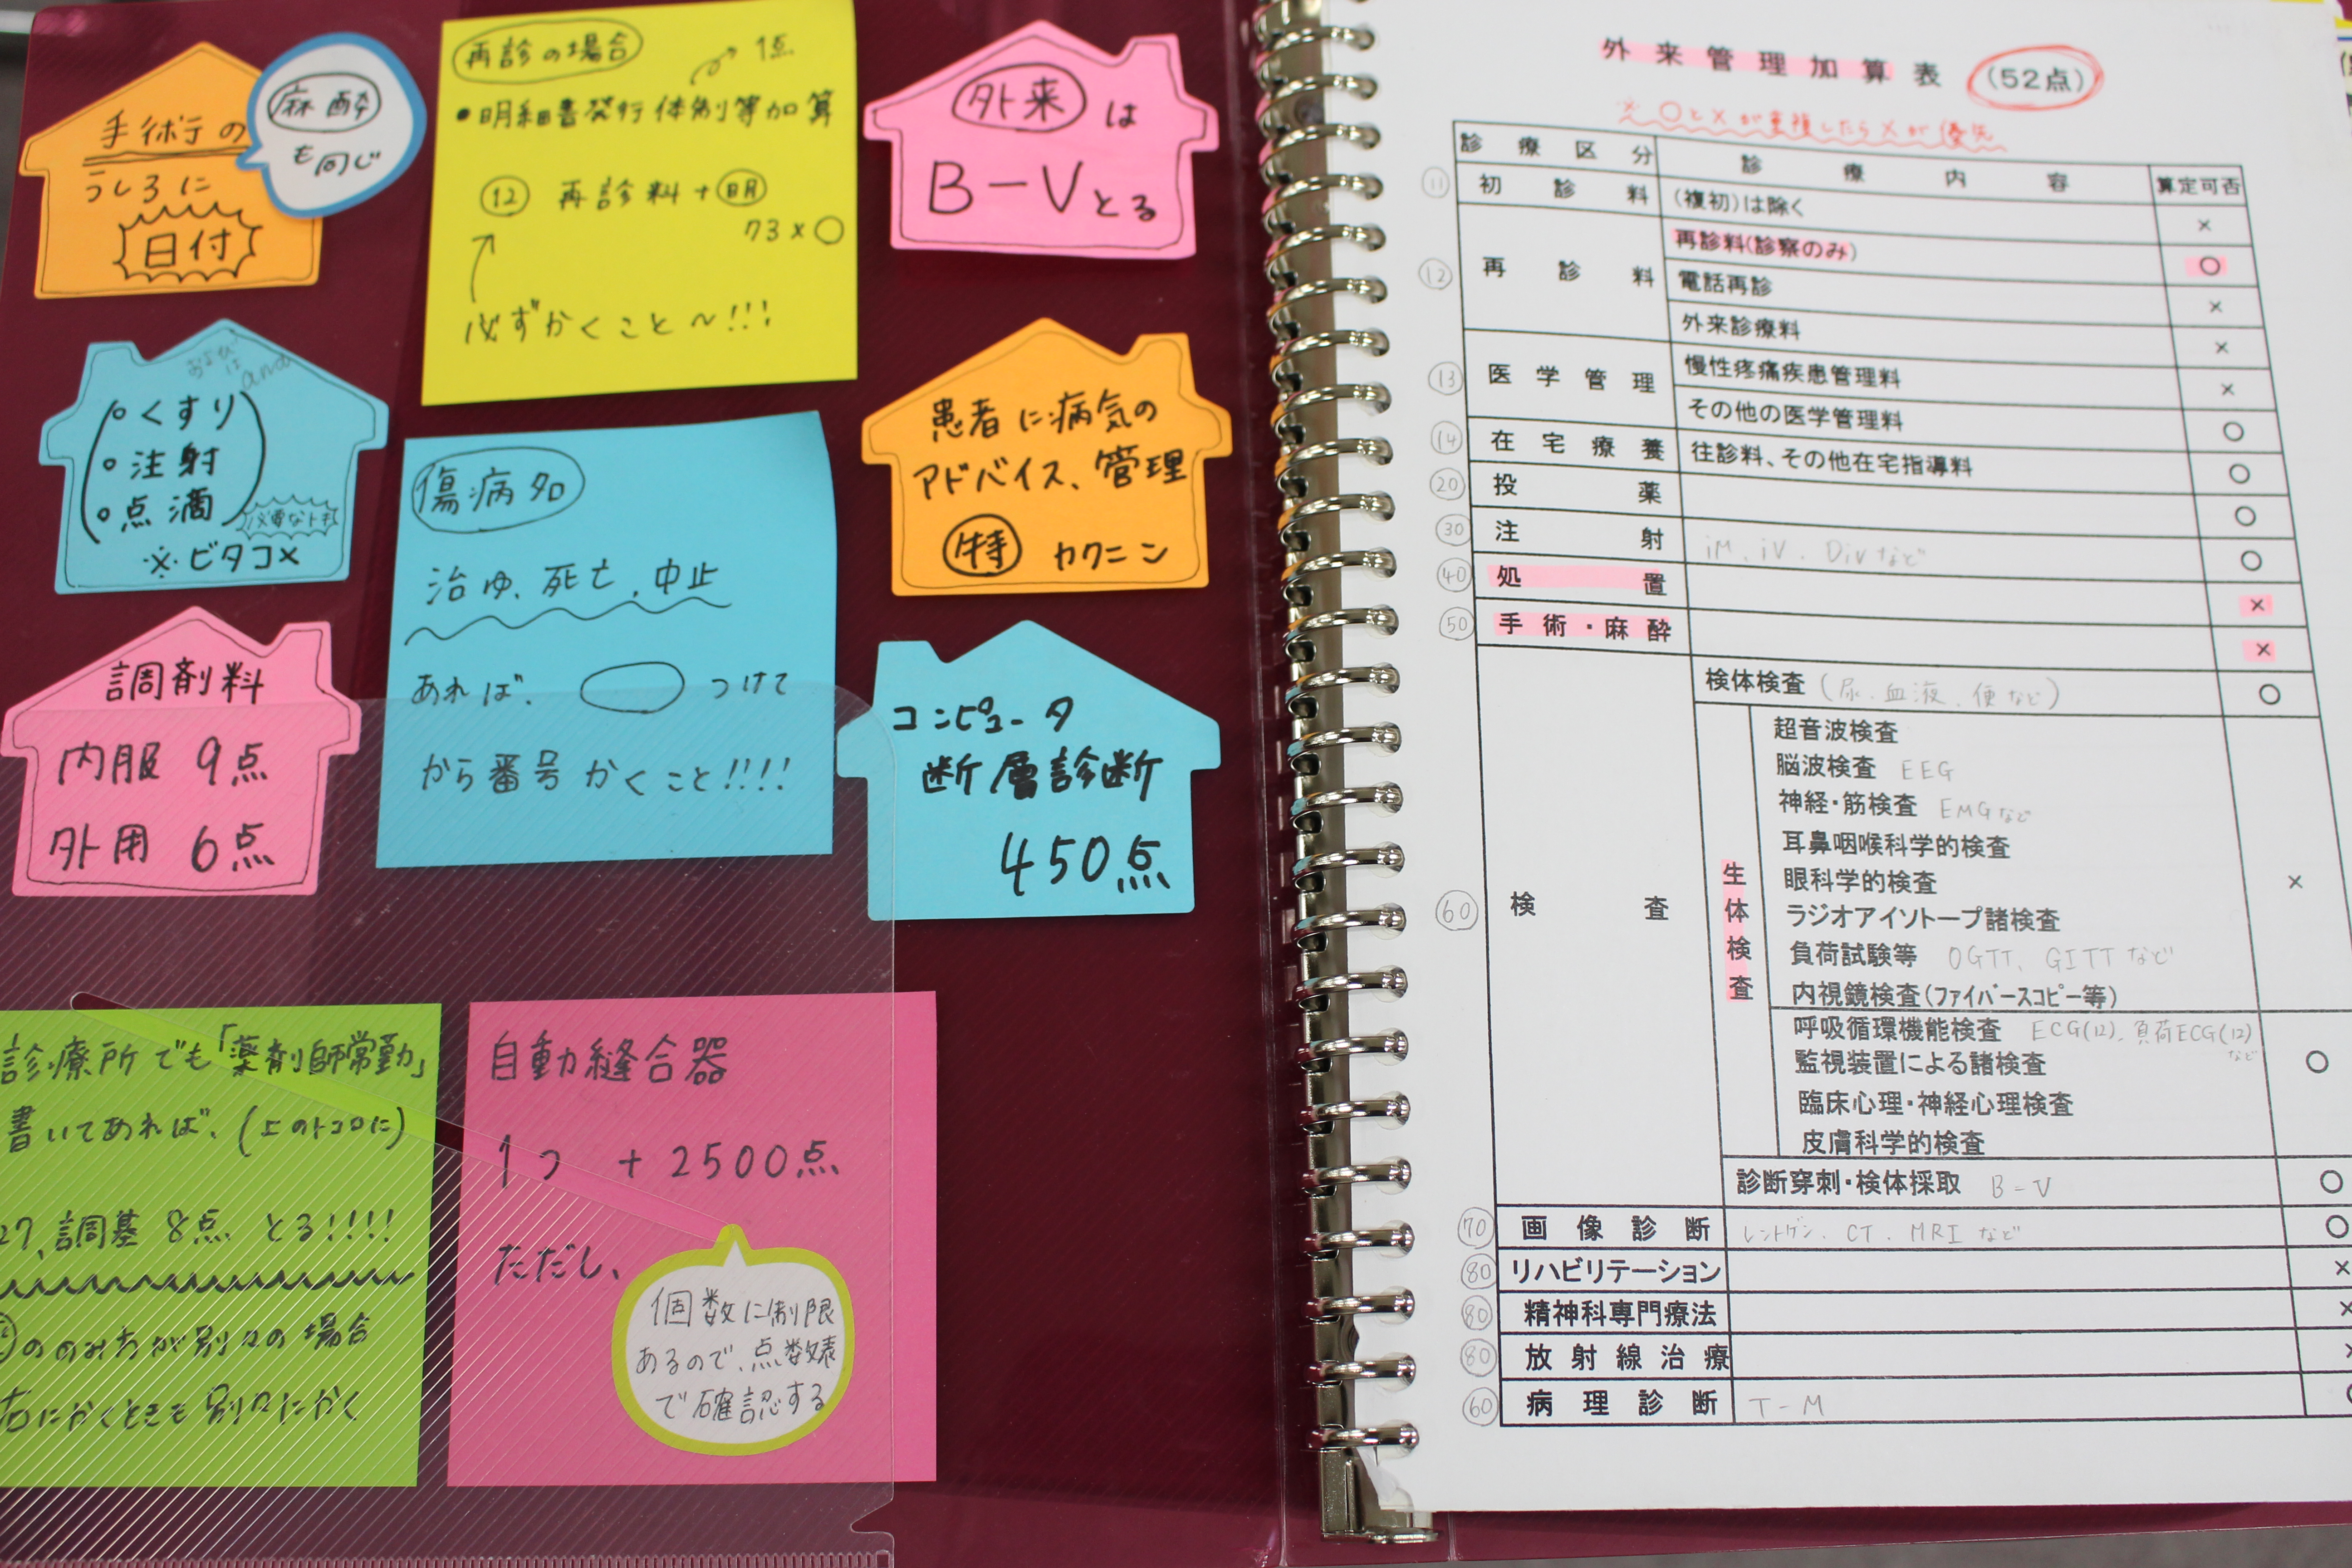 手術の
うしろに
日付
麻酔
も同じ
再診の場合
1点
•明細書発行体制等加算
⑫ 再診料+明
73×○
必ずかくこと〜!!!
外来は
B-Vとる
および
又は
and
くすり
注射
点滴
必要なトキ
※ビタコメ
傷病名
治ゆ、死亡、中止
あれば、 つけて
から番号かくこと!!!!
患者に病気の
アドバイス、管理
特 カクニン
調剤料
内服 9点
外用 6点
コンピュータ
断層診断
450点
診療所でも「薬剤師常勤」
書いてあれば、(上のトコロに)
27、調基 8点 とる!!!!
ののみ方が別々の場合
右にかくときも別々にかく
自動縫合器
1つ +2500点
ただし、
個数に制限
あるので、点数表
で確認する
外来管理加算表 (52点)
※○と×が重複したら×が優先
診療区分 診療内容 算定可否
⑪ 初診料 (複初)は除く ×
⑫ 再診料 再診料(診察のみ) ○
電話再診 ×
外来診療料 ×
⑬ 医学管理 慢性疼痛疾患管理料 ×
その他の医学管理料 ○
⑭ 在宅療養 往診料、その他在宅指導料 ○
⑳ 投薬 ○
㉚ 注射 iM、iV、Divなど ○
㊵ 処置 ×
㊿ 手術・麻酔 ×
検体検査 (尿、血液、便など) ○
60 検査
生体検査
超音波検査
脳波検査 EEG
神経・筋検査 EMGなど
耳鼻咽喉科学的検査
眼科学的検査 ×
ラジオアイソトープ諸検査
負荷試験等 OGTT、GITTなど
内視鏡検査(ファイバースコピー等)
呼吸循環機能検査 ECG(12)、負荷ECG(12)など
監視装置による諸検査 ○
臨床心理・神経心理検査
皮膚科学的検査
診断穿刺・検体採取 B-V ○
70 画像診断 レントゲン、CT、MRIなど ○
80 リハビリテーション ×
80 精神科専門療法 ×
80 放射線治療 ×
60 病理診断 T-M